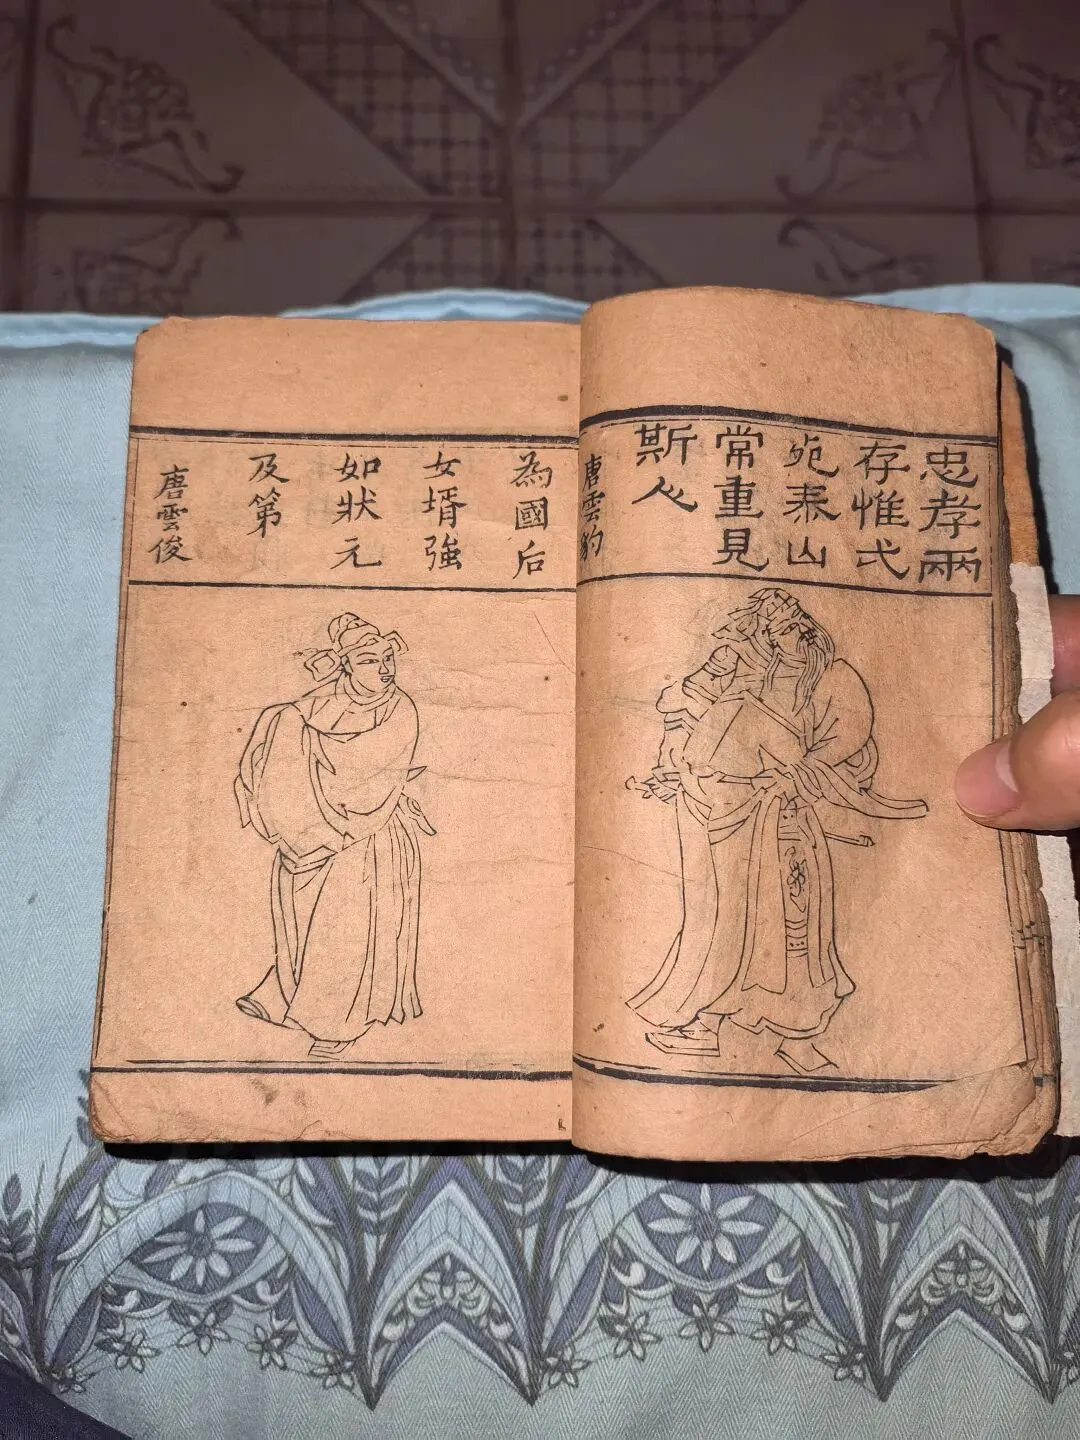 忠孝兩
存惟弌
死泰山
常重見
斯人
唐雲豹
為國后
女壻強
如狀元
及第
唐雲俊